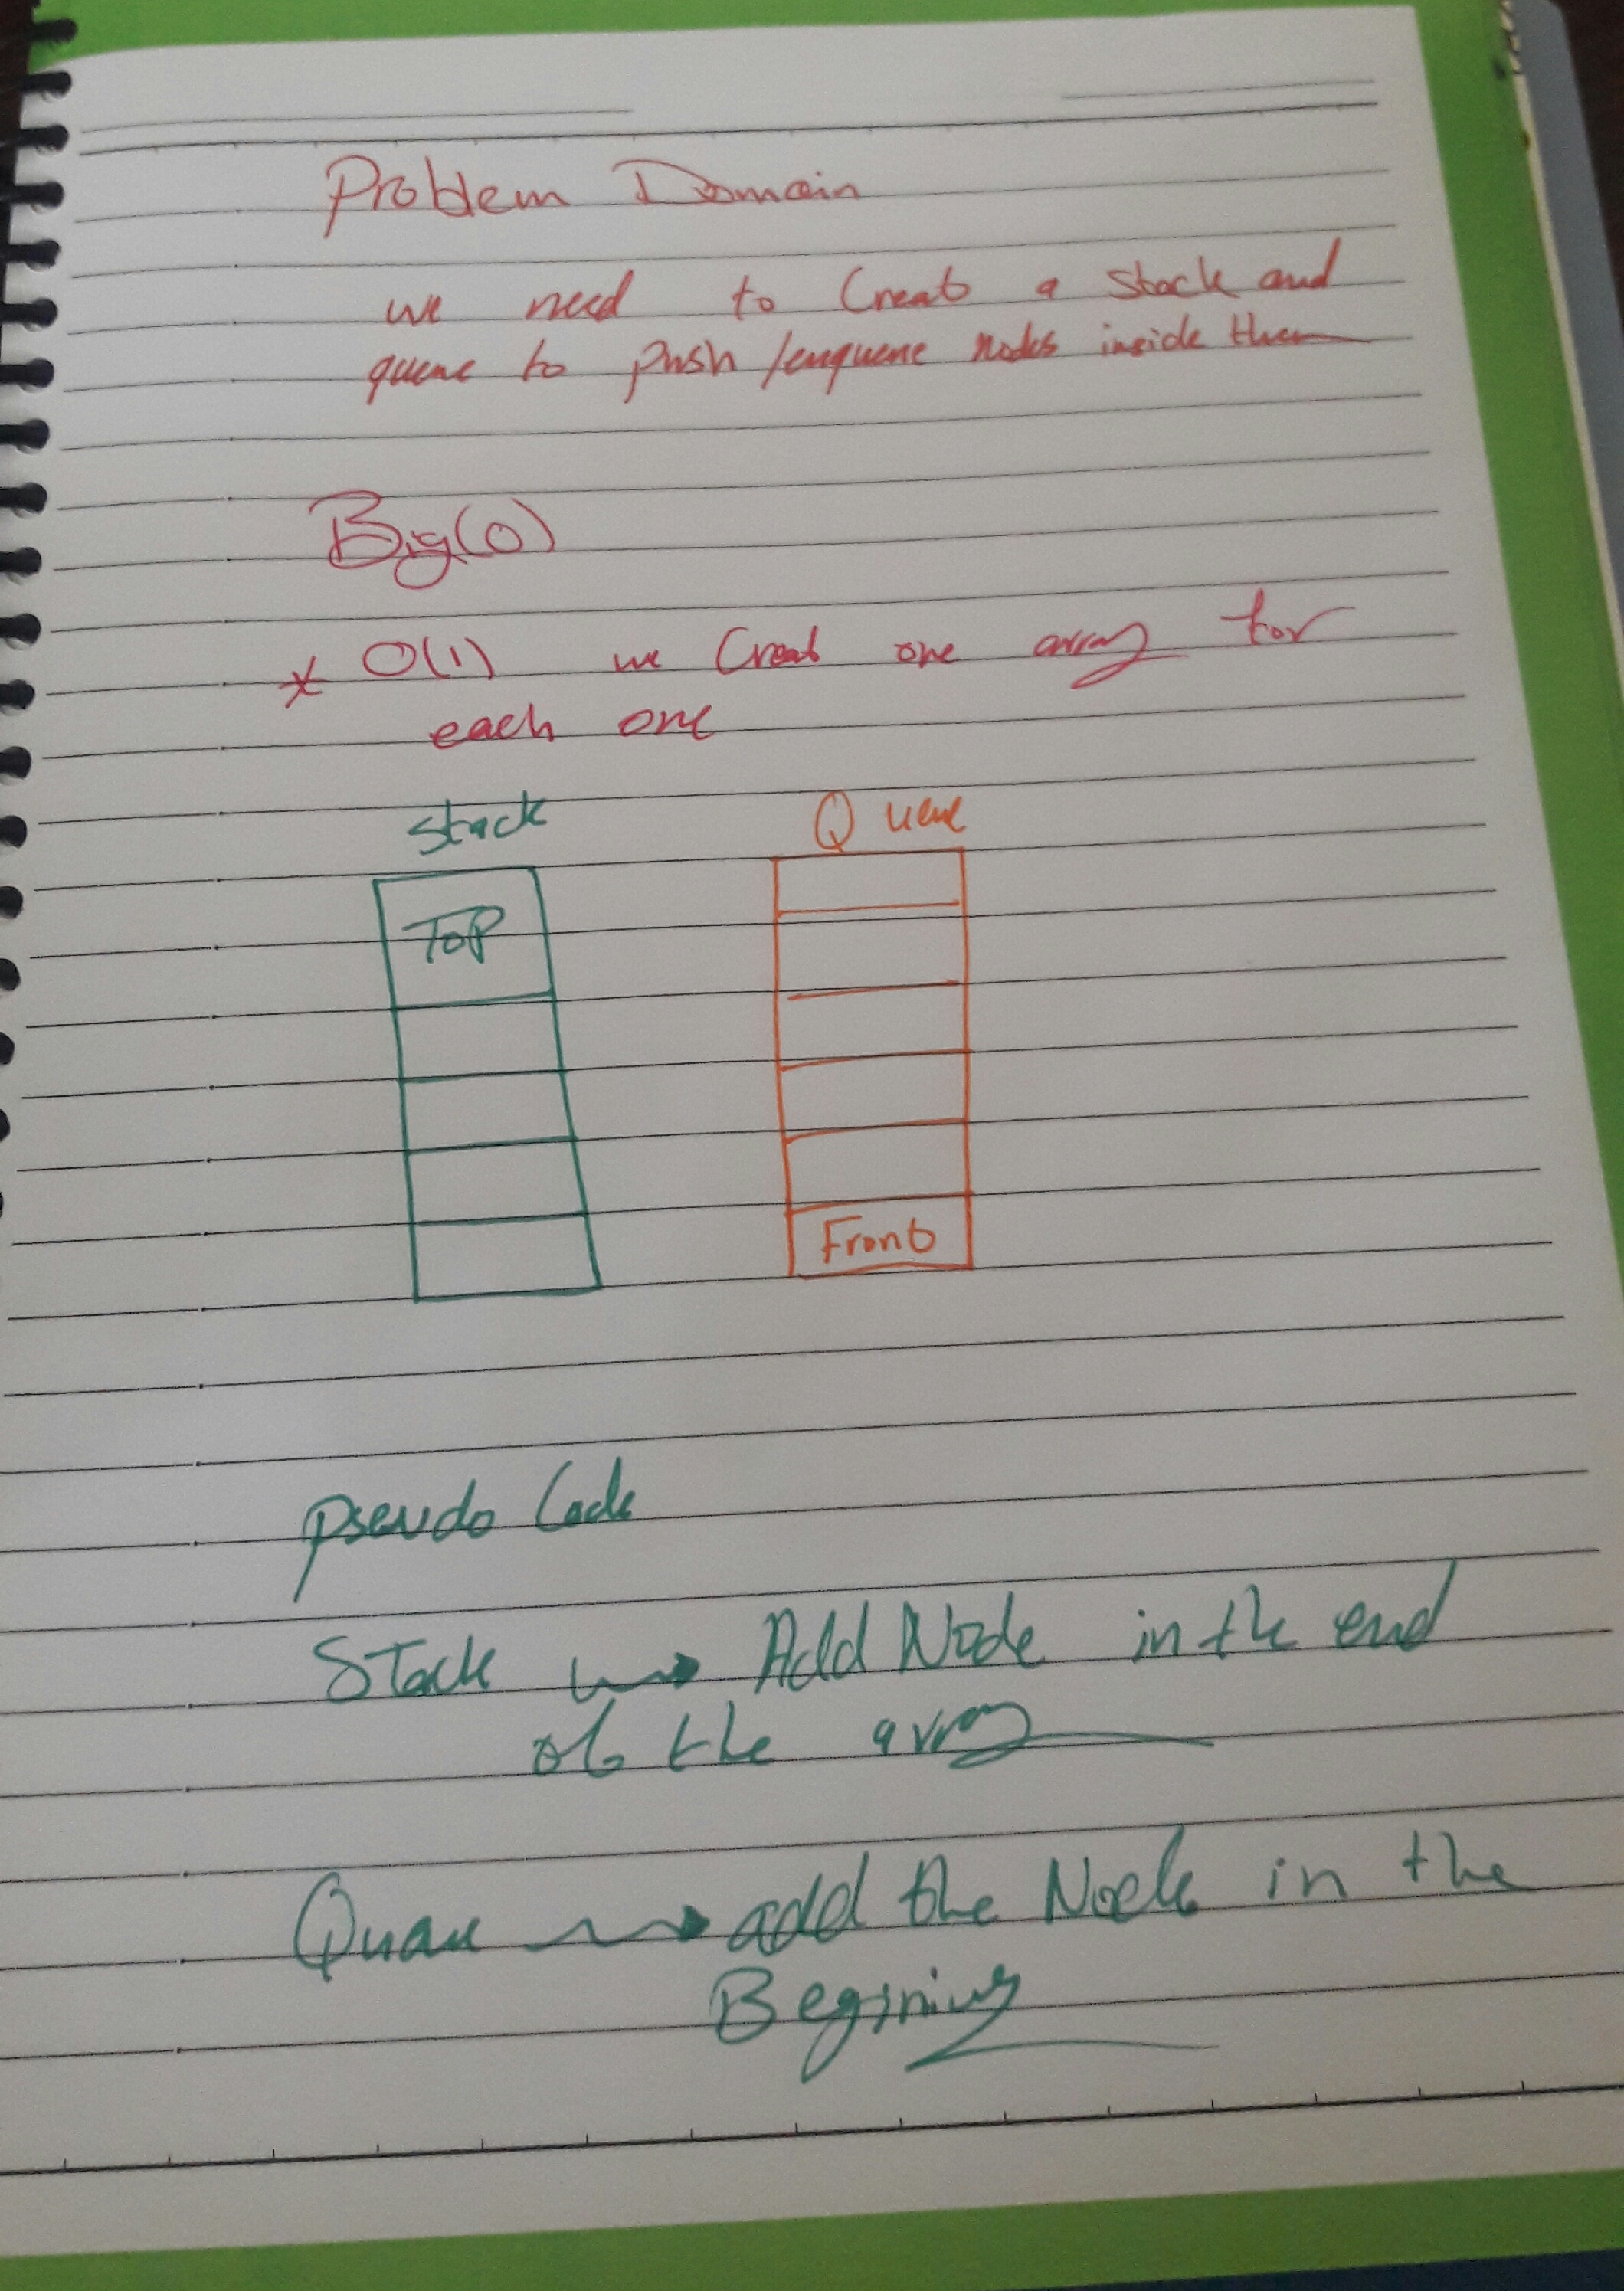 Problem Domain
we need to Creat a Stack and
queue to push /enqueue Nodes inside them
Big(O)
* O(1) we Creat one array for
each one
Stack
Queue
ToP
Front
Pseudo Code
Stack → Add Node in the end
of the array
Queue → add the Node in the
Beginning